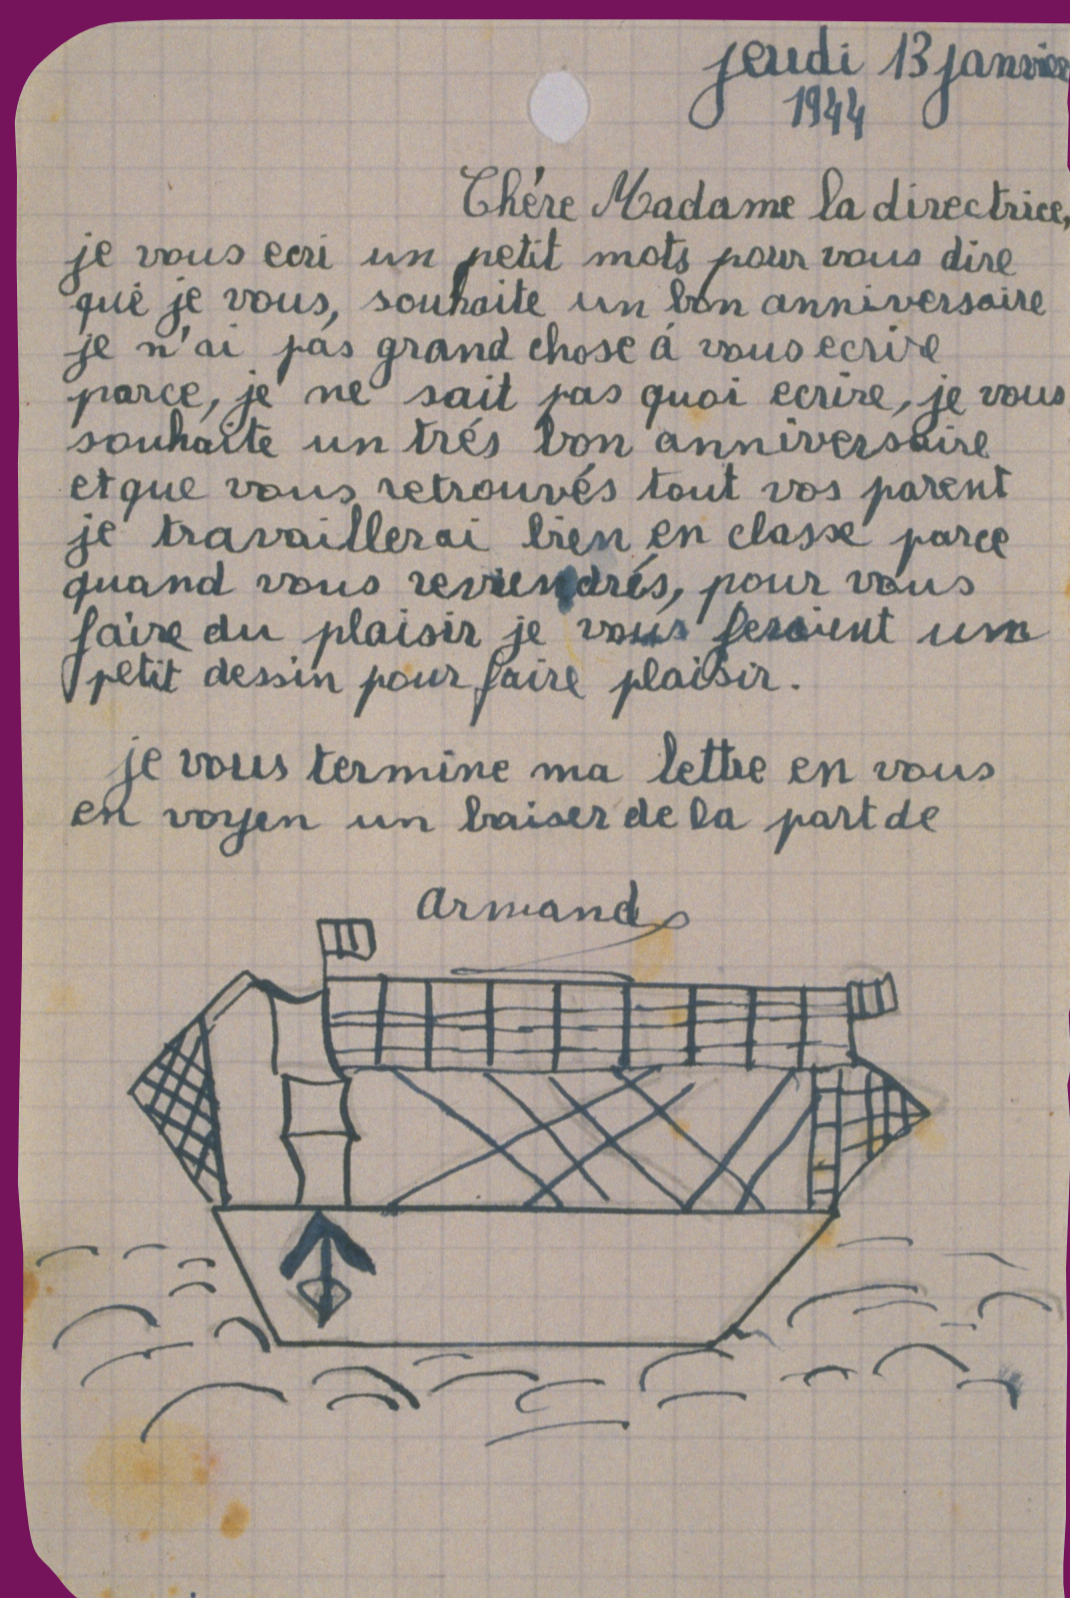 jeudi 13 janvier
1944
Chére Madame la directrice,
je vous ecri un petit mots pour vous dire
que je vous, souhaite un bon anniversaire
je n'ai pas grand chose á vous ecrire
parce, je ne sait pas quoi ecrire, je vous
souhaite un trés bon anniversaire
et que vous retrouvés tout vos parent
je travaillerai bien en classe parce
quand vous reviendrés, pour vous
faire du plaisir je vous feraient un
petit dessin pour faire plaisir.
je vous termine ma lettre en vous
en voyen un baiser de la part de
Armand